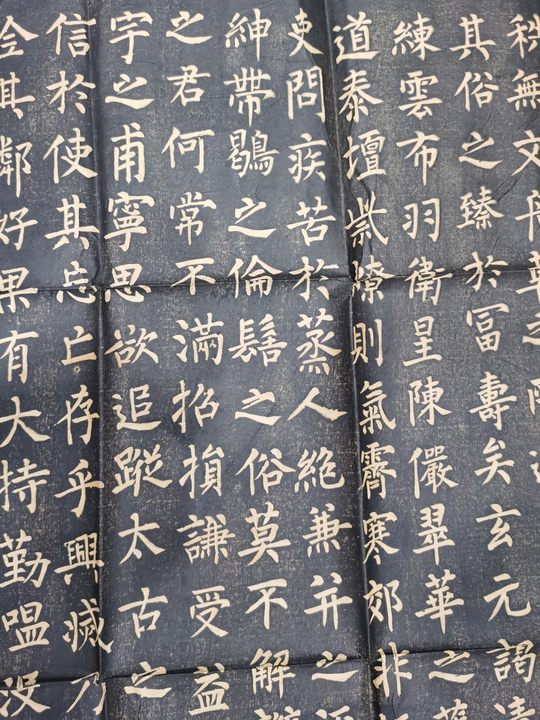 秋無文丹草之
其俗之臻於冨壽矣玄元謁清
練雲布羽衛星陳儼翠華之
道泰壇祡燎則氣霽寒郊非
吏問疾苦於蒸人絶兼并之
紳帶鶡之倫髻之俗莫不解
之君何常不滿招損謙受益
宇之甫寧思欲追蹤太古之
信於使其忘亡存乎興滅乃
今其鄰好果有大特勤嗢没